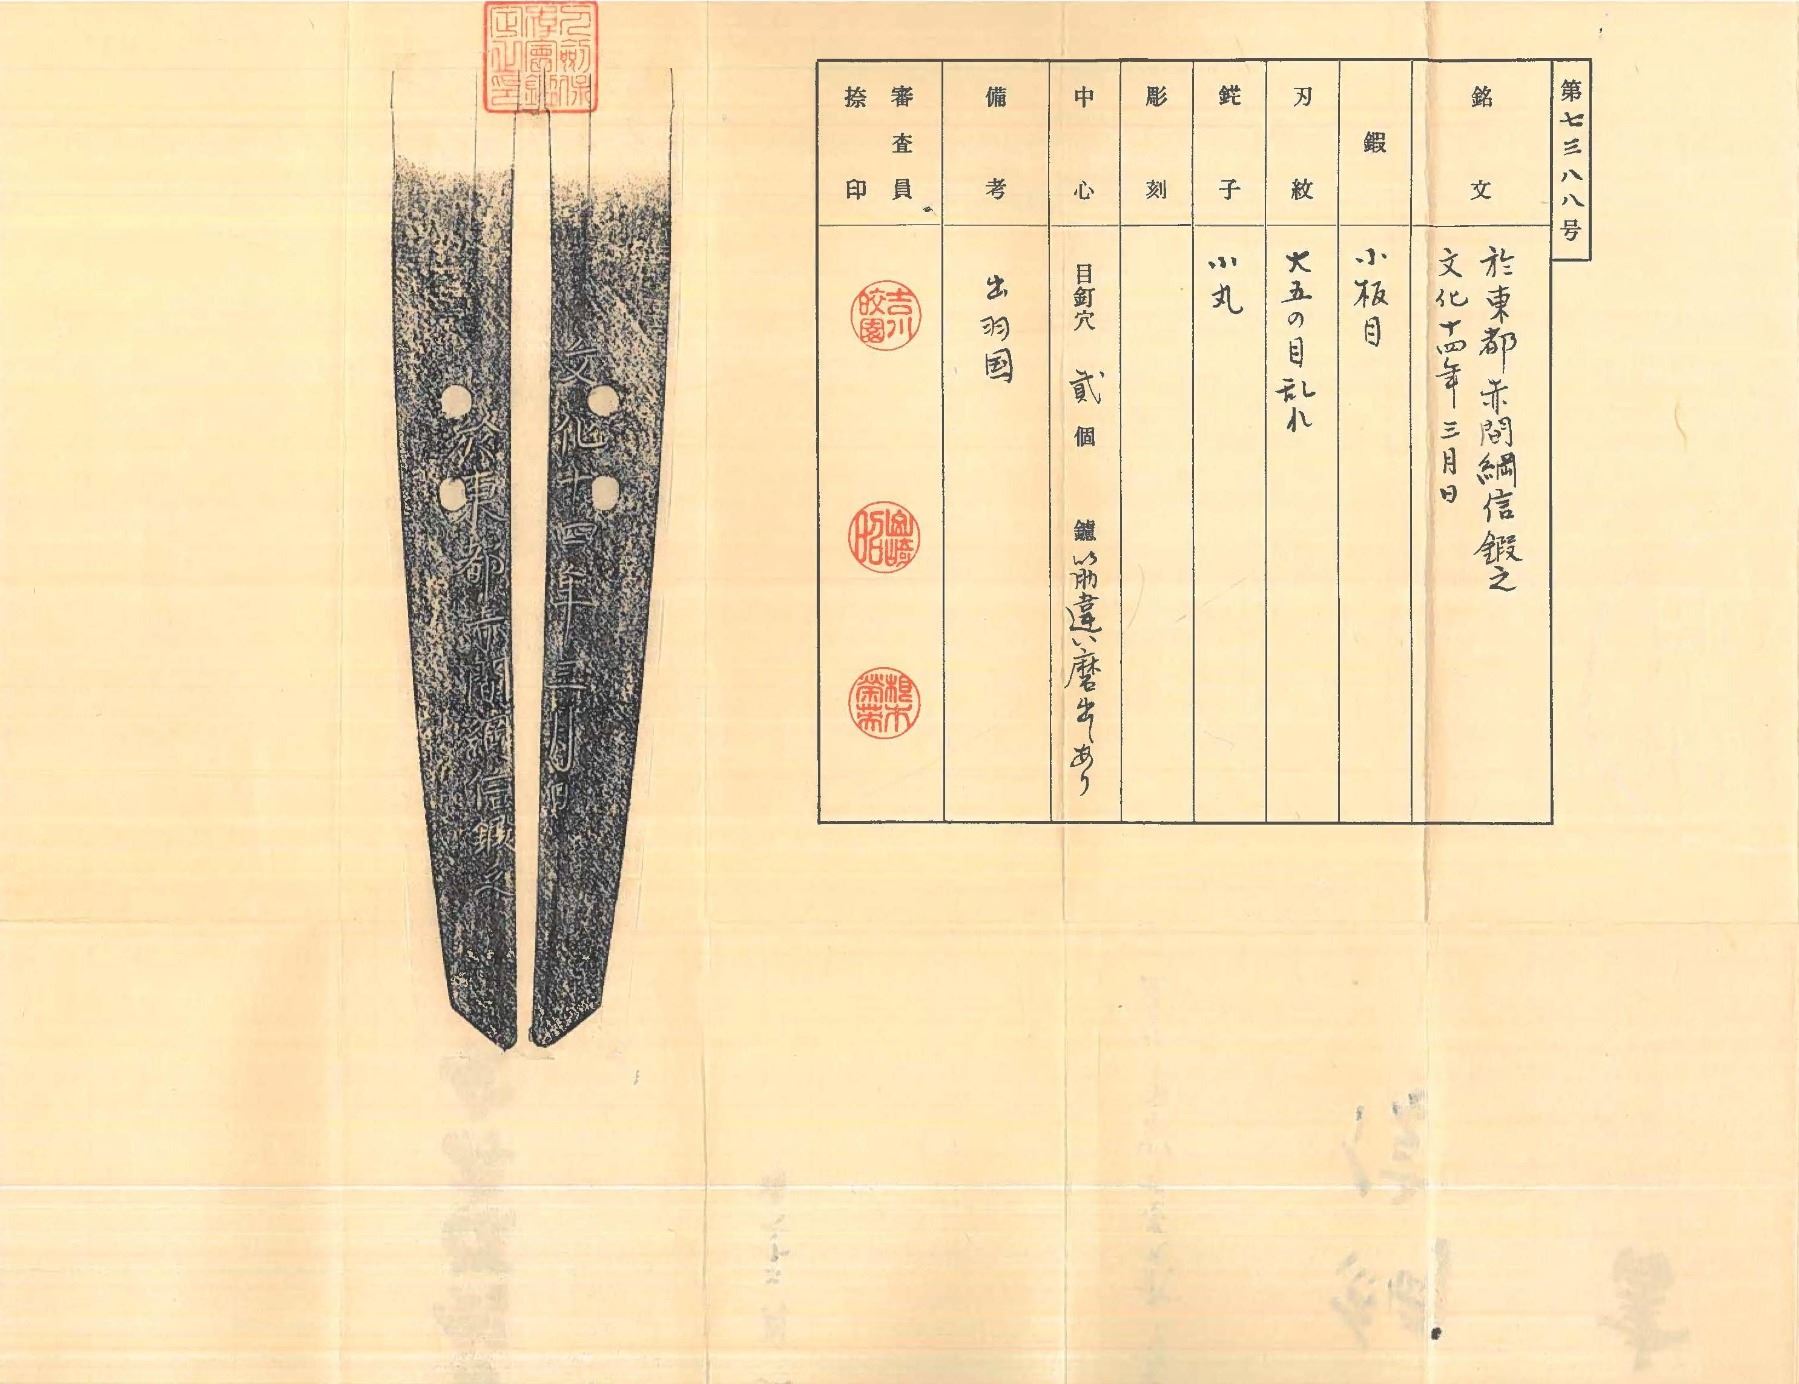 第七三八八号
銘文
於東都赤間綱信鍛之
文化十四年三月日
鍜
小板目
刃紋
大五の目乱れ
鋩子
小丸
彫刻
中心
目釘穴 貳個 鑢 筋違い磨出しあり
備考
出羽国
審査員
捺印
吉川
皎園
柴崎
昭
根木
栄
文化十四年三月日
於東都赤間綱信鍛之